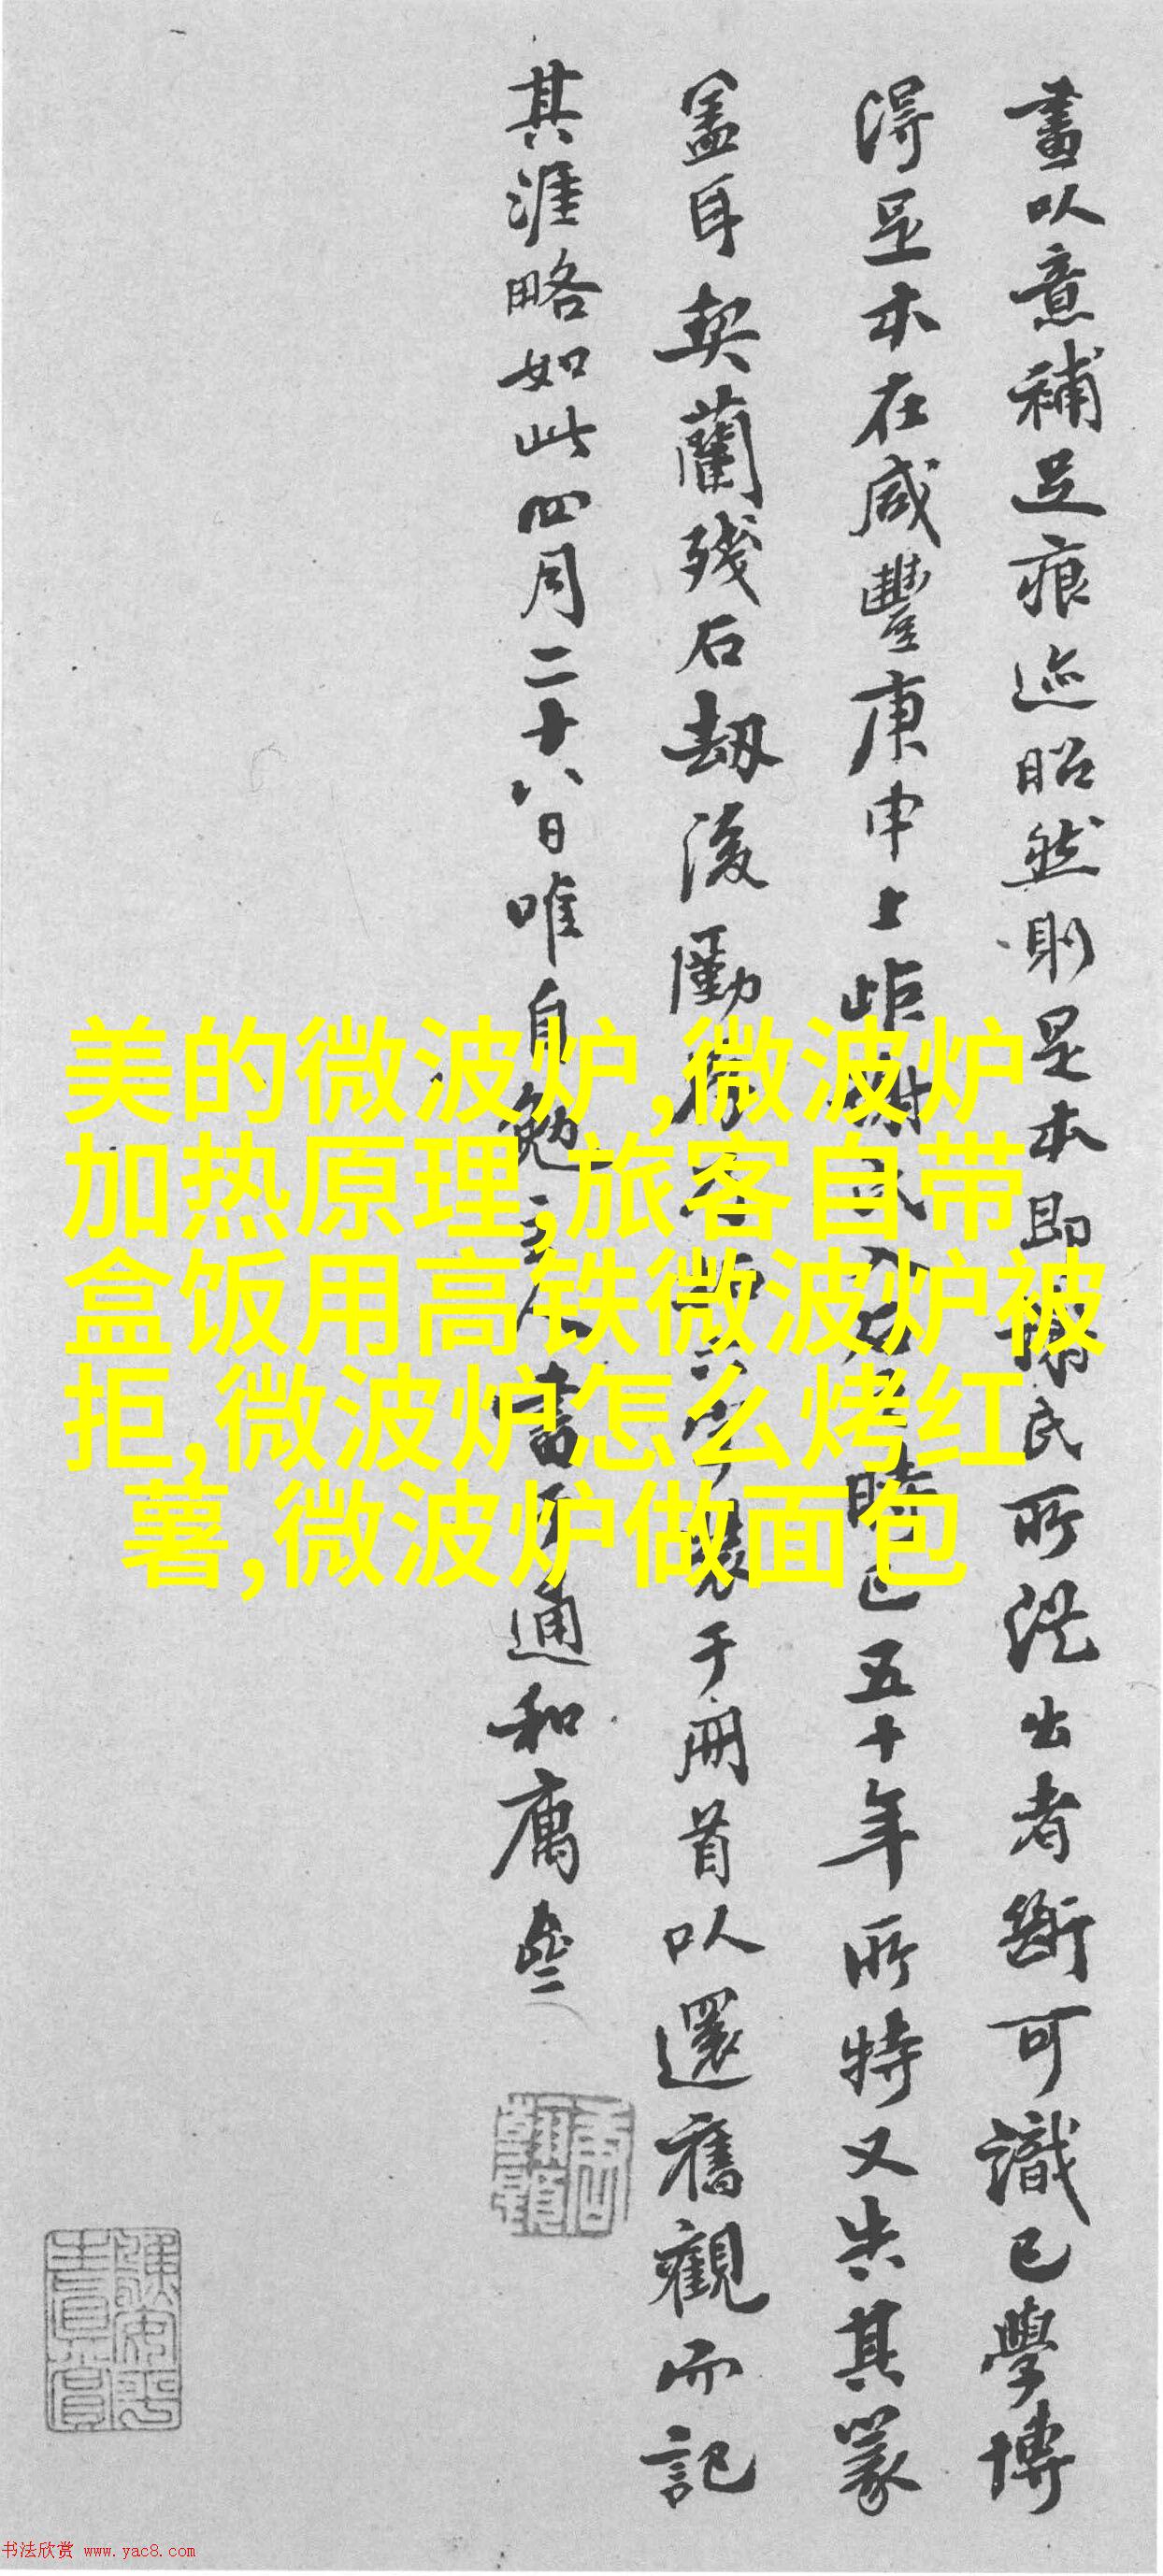 畫以意補足痕迹昭然則是本即謝氏所從出者斷可識已學博
得足本在咸豐庚申上距謝氏入石時已五十年所特又失其篆
蓋耳契蘭殘石劫後
裝于冊首以還舊觀而記
其涯略如此四月二十八日唯自勉主人書于通和唐壘
美的微波炉,微波炉
加热原理,旅客自带
盒饭用高铁微波炉被
拒,微波炉怎么烤红
薯,微波炉做面包
书法欣赏 www.yac8.com